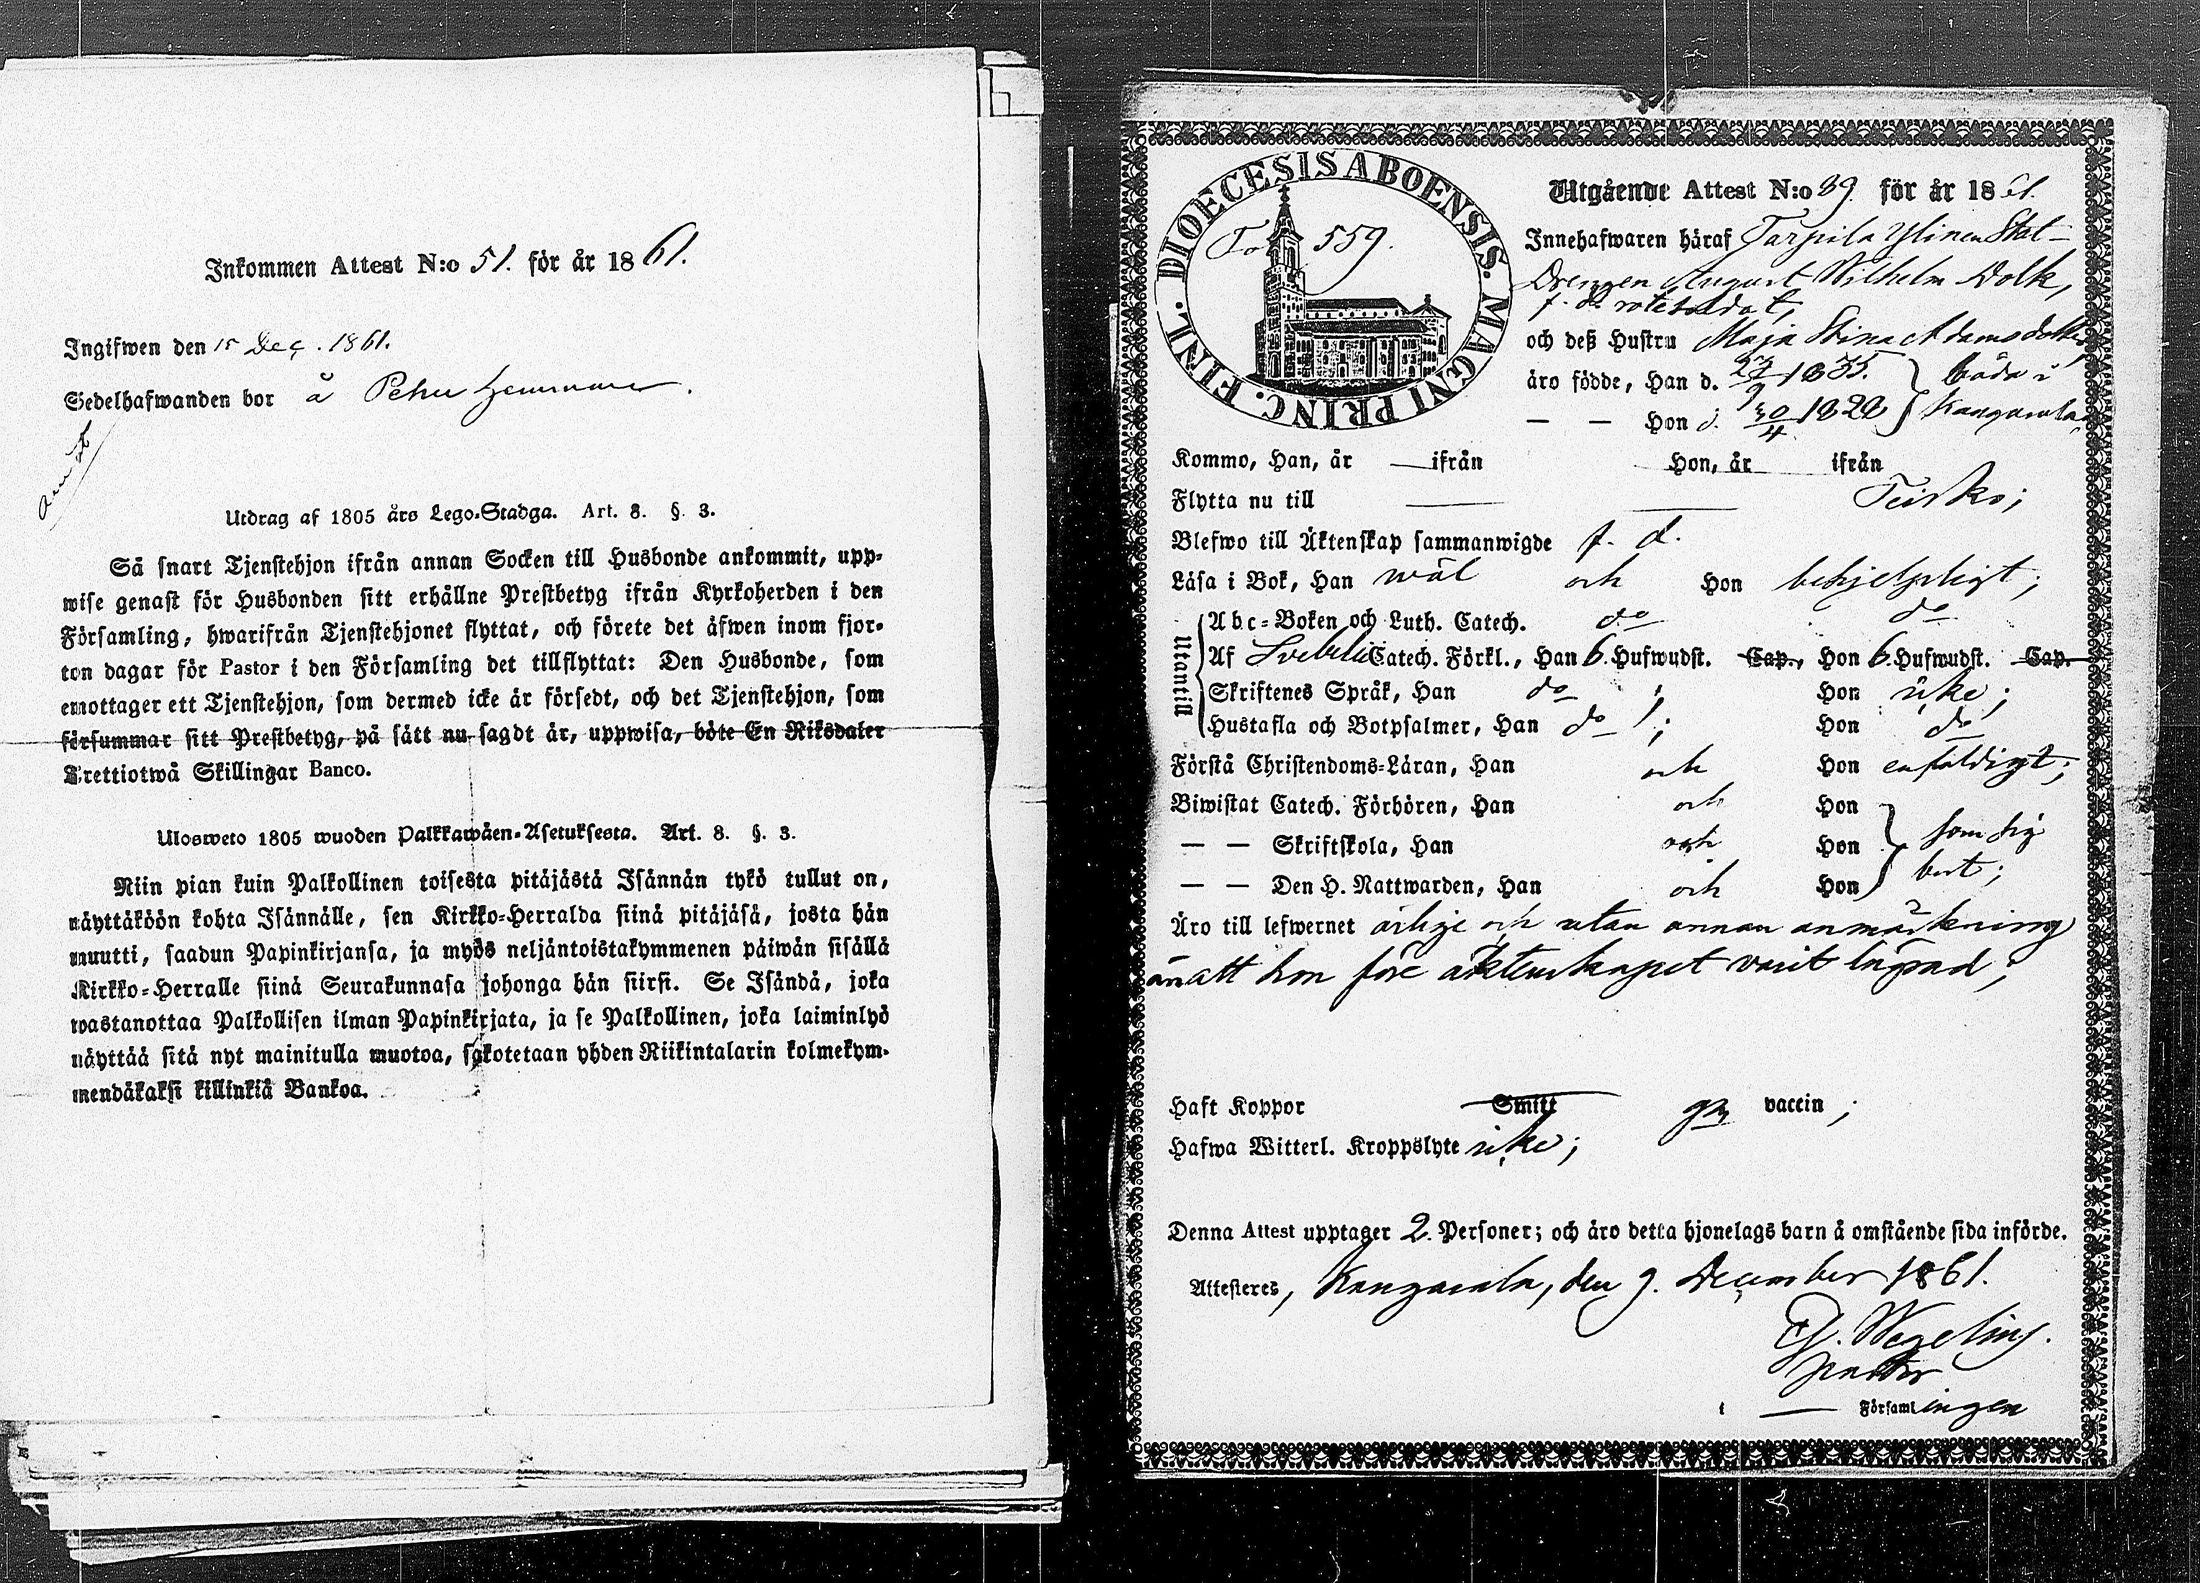 Inkommen Attest N:o 51. för år 1861.
Ingifwen den 15 Dec. 1861.
Sedelhafwanden bor å Pehu hemman.
Utdrag af 1805 års Lego-Stadga. Art. 8. §. 3.
Så snart Tjenstehjon ifrån annan Socken till Husbonde ankommit, upp-
wise genast för Husbonden sitt erhållne Prestbetyg ifrån Kyrkoherden i den
Församling, hwarifrån Tjenstehjonet flyttat, och förete det äfwen inom fjor-
ton dagar för Pastor i den Församling det tillflyttat: Den Husbonde, som
emottager ett Tjenstehjon, som dermed icke är försedt, och det Tjenstehjon, som
försummar sitt Prestbetyg, på sätt nu sagdt är, uppwisa, böte En Riksdaler
Trettiotwå Skillingar Banco.
Ulosweto 1805 wuoden Palkkawäen-Asetuksesta. Art. 8. §. 3.
Niin pian kuin Palkollinen toisesta pitäjästä Isännän tykö tullut on,
näyttäköön kohta Isännälle, sen Kirkko-Herralda siinä pitäjäsä, josta hän
muutti, saadun Papinkirjansa, ja myös neljäntoistakymmenen päiwän sisällä
Kirkko-Herralle siinä Seurakunnasa johonga hän siirsi. Se Isändä, joka
wastanottaa Palkollisen ilman Papinkirjata, ja se Palkollinen, joka laiminlyö
näyttää sitä nyt mainitulla muotoa, sakotetaan yhden Riikintalarin kolmekym-
mendäkaksi killinkiä Bankoa.
DIOECESIS ABOENSIS. MAGNI PRINC. FINL.
559.
Utgående Attest N:o 39. för år 1861.
Innehafwaren häraf Tarpila Ylinen Stat-
Drengen August Wilhelm Dolk,
f. d. rotesoldat,
och deß Hustru Maja Stina Adamsdotter
äro födde, Han d. 27/9 1835. båda i
— — Hon d. 30/4 1828 Kangasala
Kommo, Han, år — ifrån Hon, år ifrån
Flytta nu till Teisko;
Blefwo till Äktenskap sammanwigde f. d.
Läsa i Bok, Han wäl och Hon behjelpligt;
Utantill
Abc-Boken och Luth. Catech. do do
Af Svebelii Catech. Förkl., Han 6. Hufwudst. Cap., Hon 6. Hufwudst. Cap.
Skriftenes Språk, Han do; Hon icke;
Hustafla och Botpsalmer, Han do; Hon do
Förstå Christendoms-Läran, Han och Hon enfaldigt;
Biwistat Catech. Förhören, Han och Hon
— — Skriftskola, Han och Hon som sig
— — Den H. Nattwarden, Han och Hon bort;
Äro till lefwernet ärlige och utan annan anmärkning
än att hon före äktenskapet varit lägrad;
Haft Koppor Smitt gm vaccin;
Hafwa Witterl. Kroppslyte icke;
Denna Attest upptager 2. Personer; och äro detta hjonelags barn å omstående sida införde.
Attesteres, Kangasala, den 9. December 1861.
Wegelius.
pastor
i — Församlingen